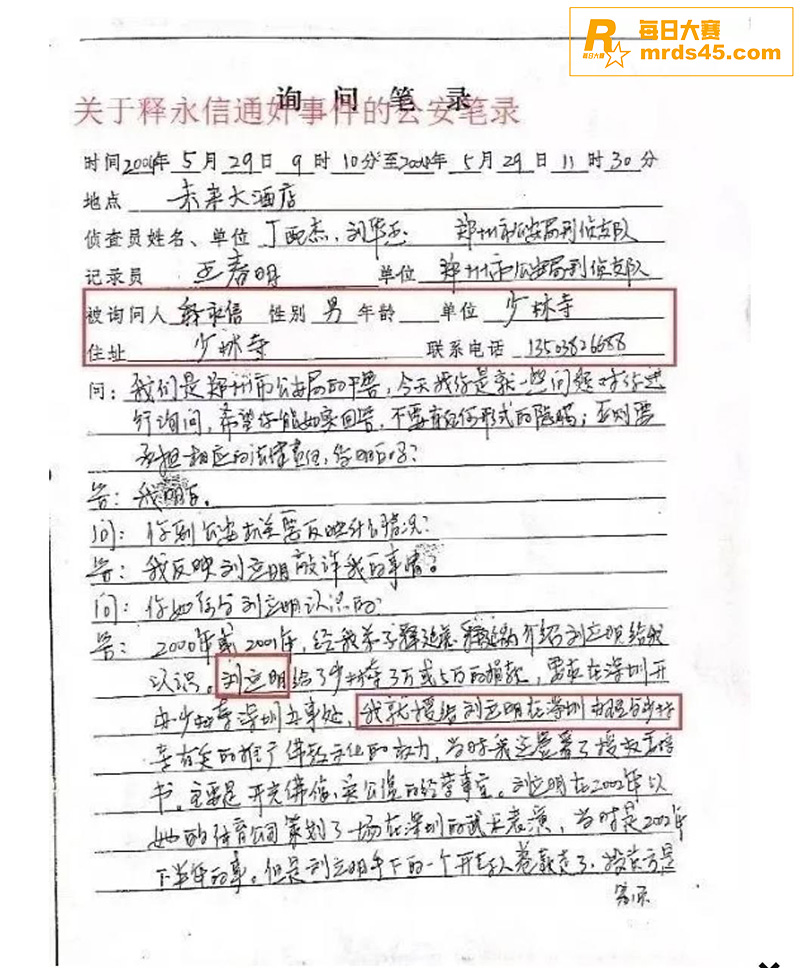 每日大赛
mrds45.com
R
每日大赛
询问笔录
关于释永信通奸事件的公安笔录
时间2004年5月29日9时10分至2004年5月29日11时30分
地点 未来大酒店
侦查员姓名、单位 丁 杰、刘华 郑州市公安局刑侦支队
记录员 王春明 单位 郑州市公安局刑侦支队
被询问人 释永信 性别 男 年龄 单位 少林寺
住址 少林寺 联系电话 13503826688
问：我们是郑州市公安局的干警，今天我们是就一些问题对你进
行询问，希望你能如实回答，不要有任何形式的隐瞒；否则要
承担相应的法律责任，你明白吗？
答：我明白。
问：你到公安机关要反映什么情况？
答：我反映刘立明敲诈我的事情。
问：你如何与刘立明认识的？
答：2000年或2001年，经我弟子释延 介绍刘立明给我
认识。刘立明给了少林寺3万或5万的捐款，要求在深圳开
办少林寺深圳办事处，我就授给刘立明在深圳办理与少林
寺有关的推广佛教文化的权力，当时我还签署了授权委托
书。主要是开光佛像、卖公益的经营事宜。刘立明在2002年以
她的体育公司策划了一场在深圳的武术表演，当时是2002年
下半年的事。但是刘立明手下的一个开车人卷款走了，投资方是